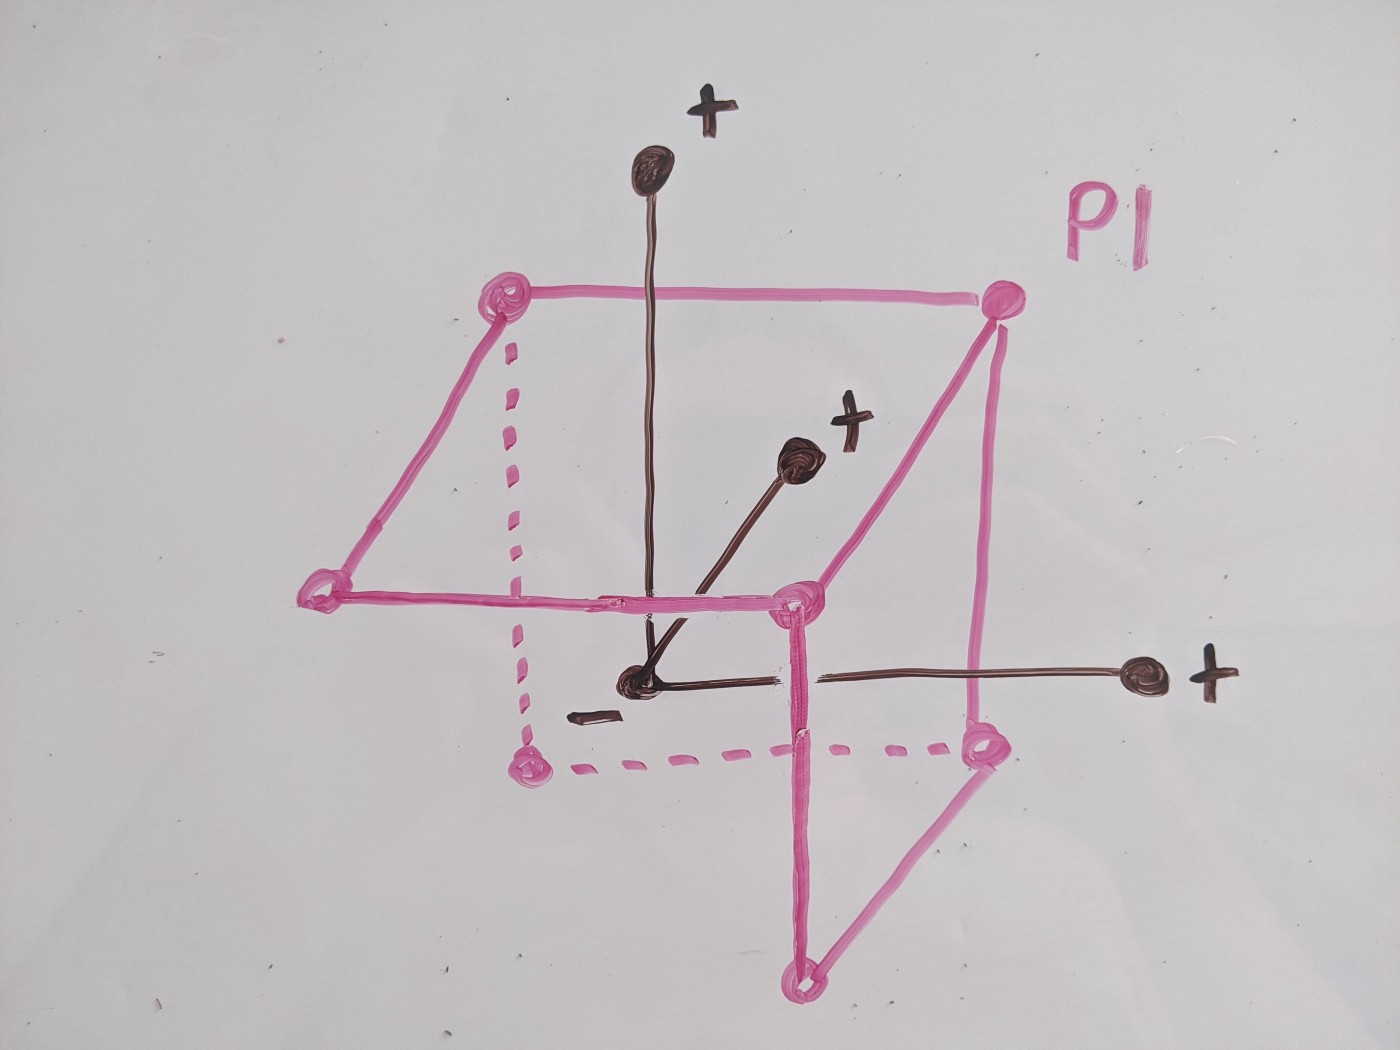 +
P1
+
+
-